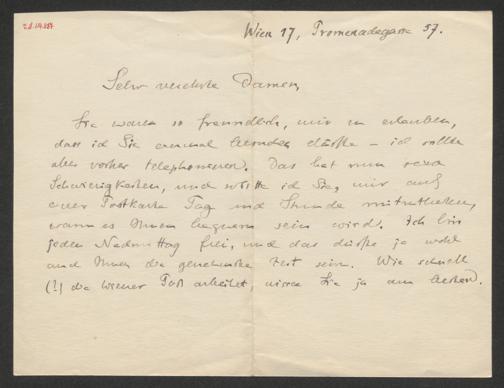 28.IV.37
Wien 17, Promenadegasse 57.
Sehr verehrte Damen,
Sie waren so freundlich, mir zu erlauben,
dass ich Sie einmal besuchen dürfte – ich sollte
aber vorher telephonieren. Das hat nun
Schwierigkeiten, und bitte ich Sie, mir auf
einer Postkarte Tag und Stunde mitzutheilen,
wann es Ihnen bequem sein wird. Ich bin
jeden Nachmittag frei, und das dürfte ja wohl
auch Ihnen die genehmste Zeit sein. Wie schnell
(!) die Wiener Post arbeitet, wissen Sie ja am besten.